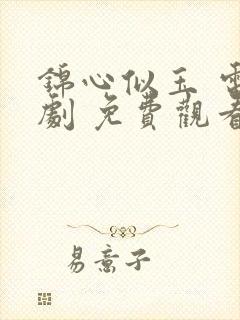 錦心似玉 電
劇 免費觀看
易意子